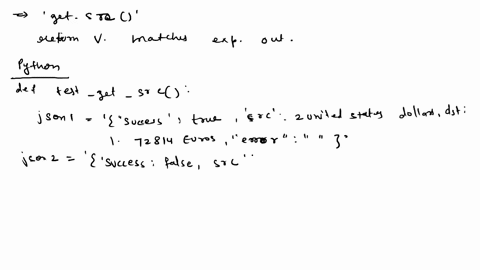 ⇒ 'get_src()'
return V. matches exp. out.
Python
def test_get_src():
json1 = '{"success': true, 'src': 2 united states dollars, dst:
1. 72814 Euros, "error": " " }'
json2 = '{'success: false, src''